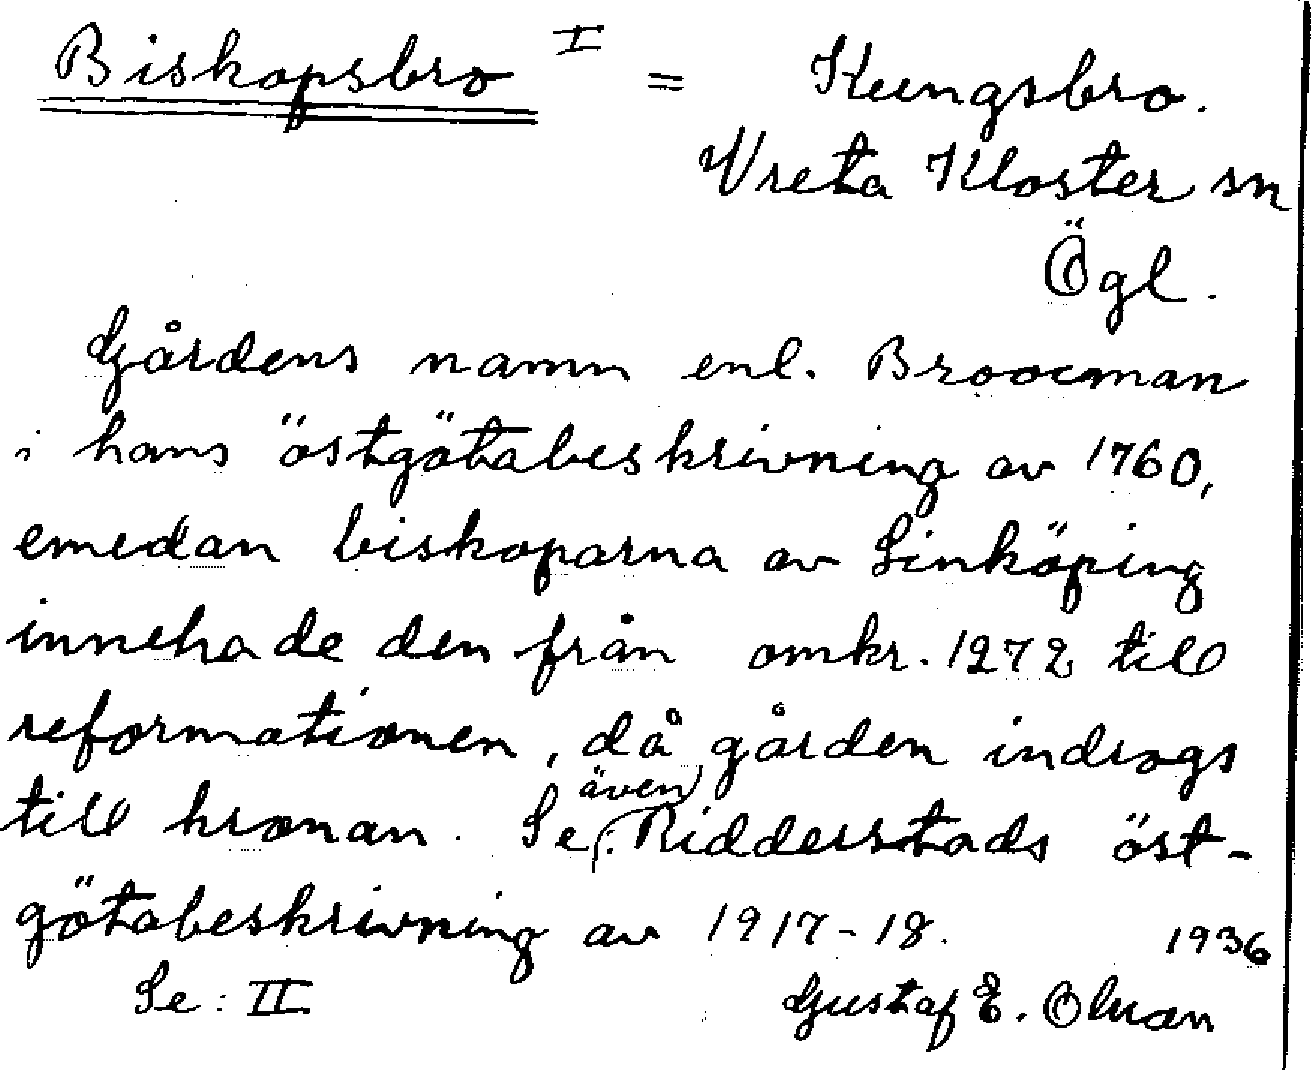 Biskopsbro I = Kungsbro.
Vreta Kloster sn
Ögl.
Gårdens namn enl. Broocman
i hans östgötabeskrivning av 1760,
emedan biskoparna av Linköping
innehade den från omkr. 1272 till
reformationen, då gården indrogs
till kronan. Se även: Ridderstads öst-
götabeskrivning av 1917-18. 1936
Se: II Gustaf E. Olsson